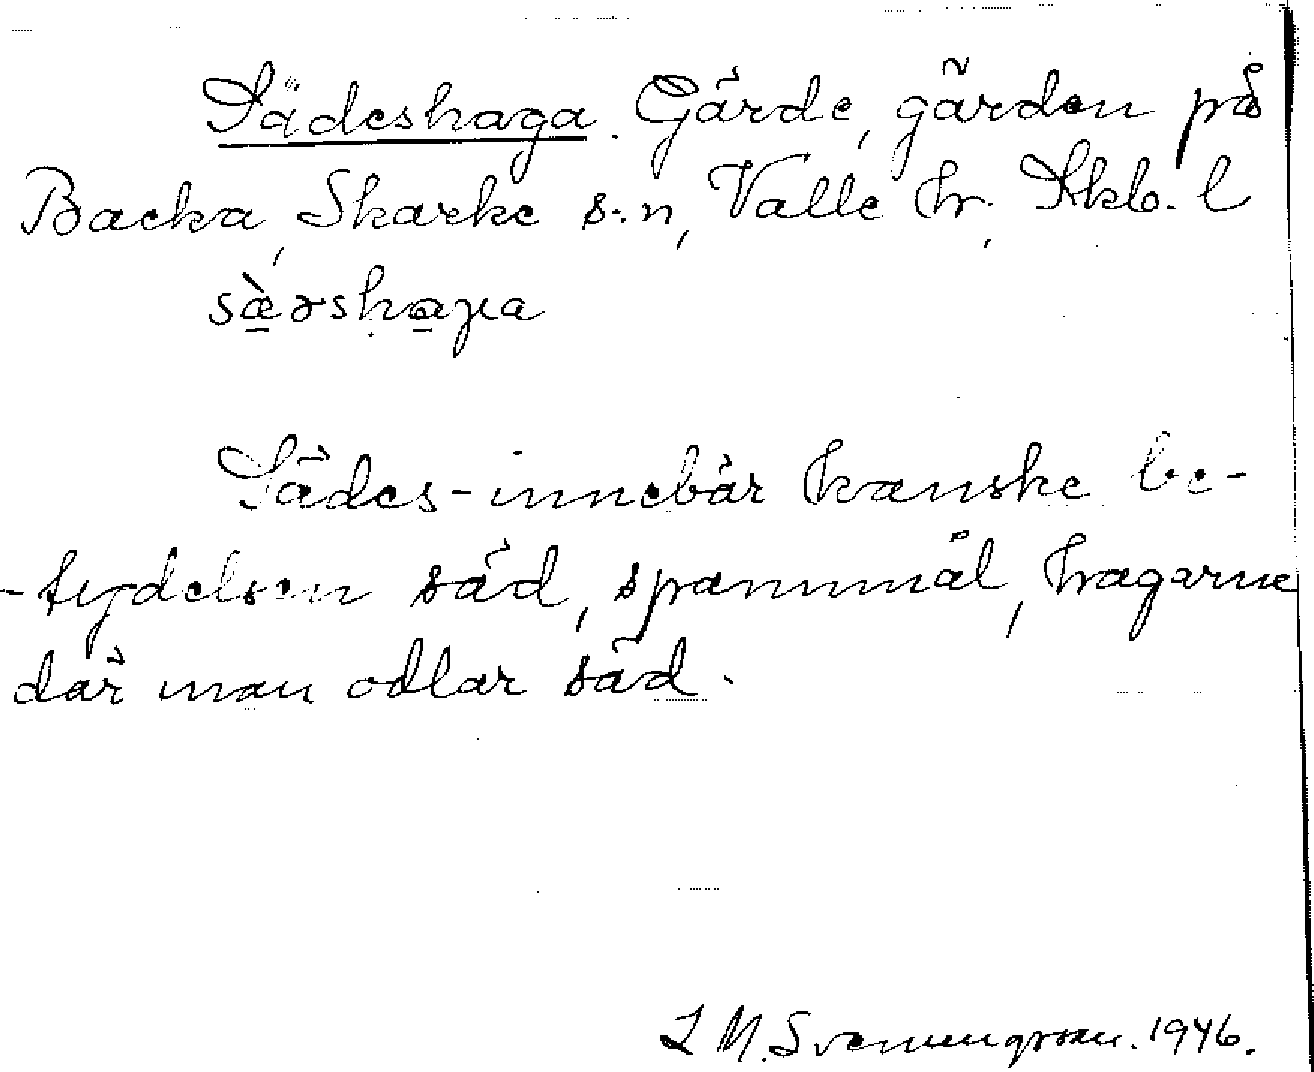 Sädeshaga. Gärde, gärden på
Backa, Skarke s:n, Valle hr. Skb. l
sæ̀ɷshaga
Sädes-innebär kanske be-
-tydelsen säd, spannmål, hagarne
där man odlar säd.
L M. Svenungsson. 1946.